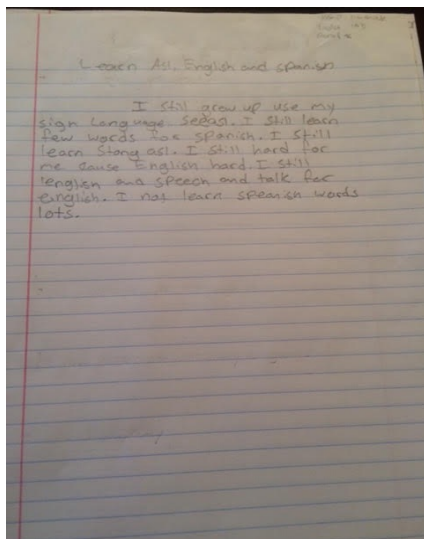 Learn Asl, English and spanish
I still grew up use my
sign Language. Seeasl. I still learn
few words for spanish. I still
learn Stong asl. I still hard for
me cause English hard. I still
english and speech and talk for
english. I not learn speanish words
lots.